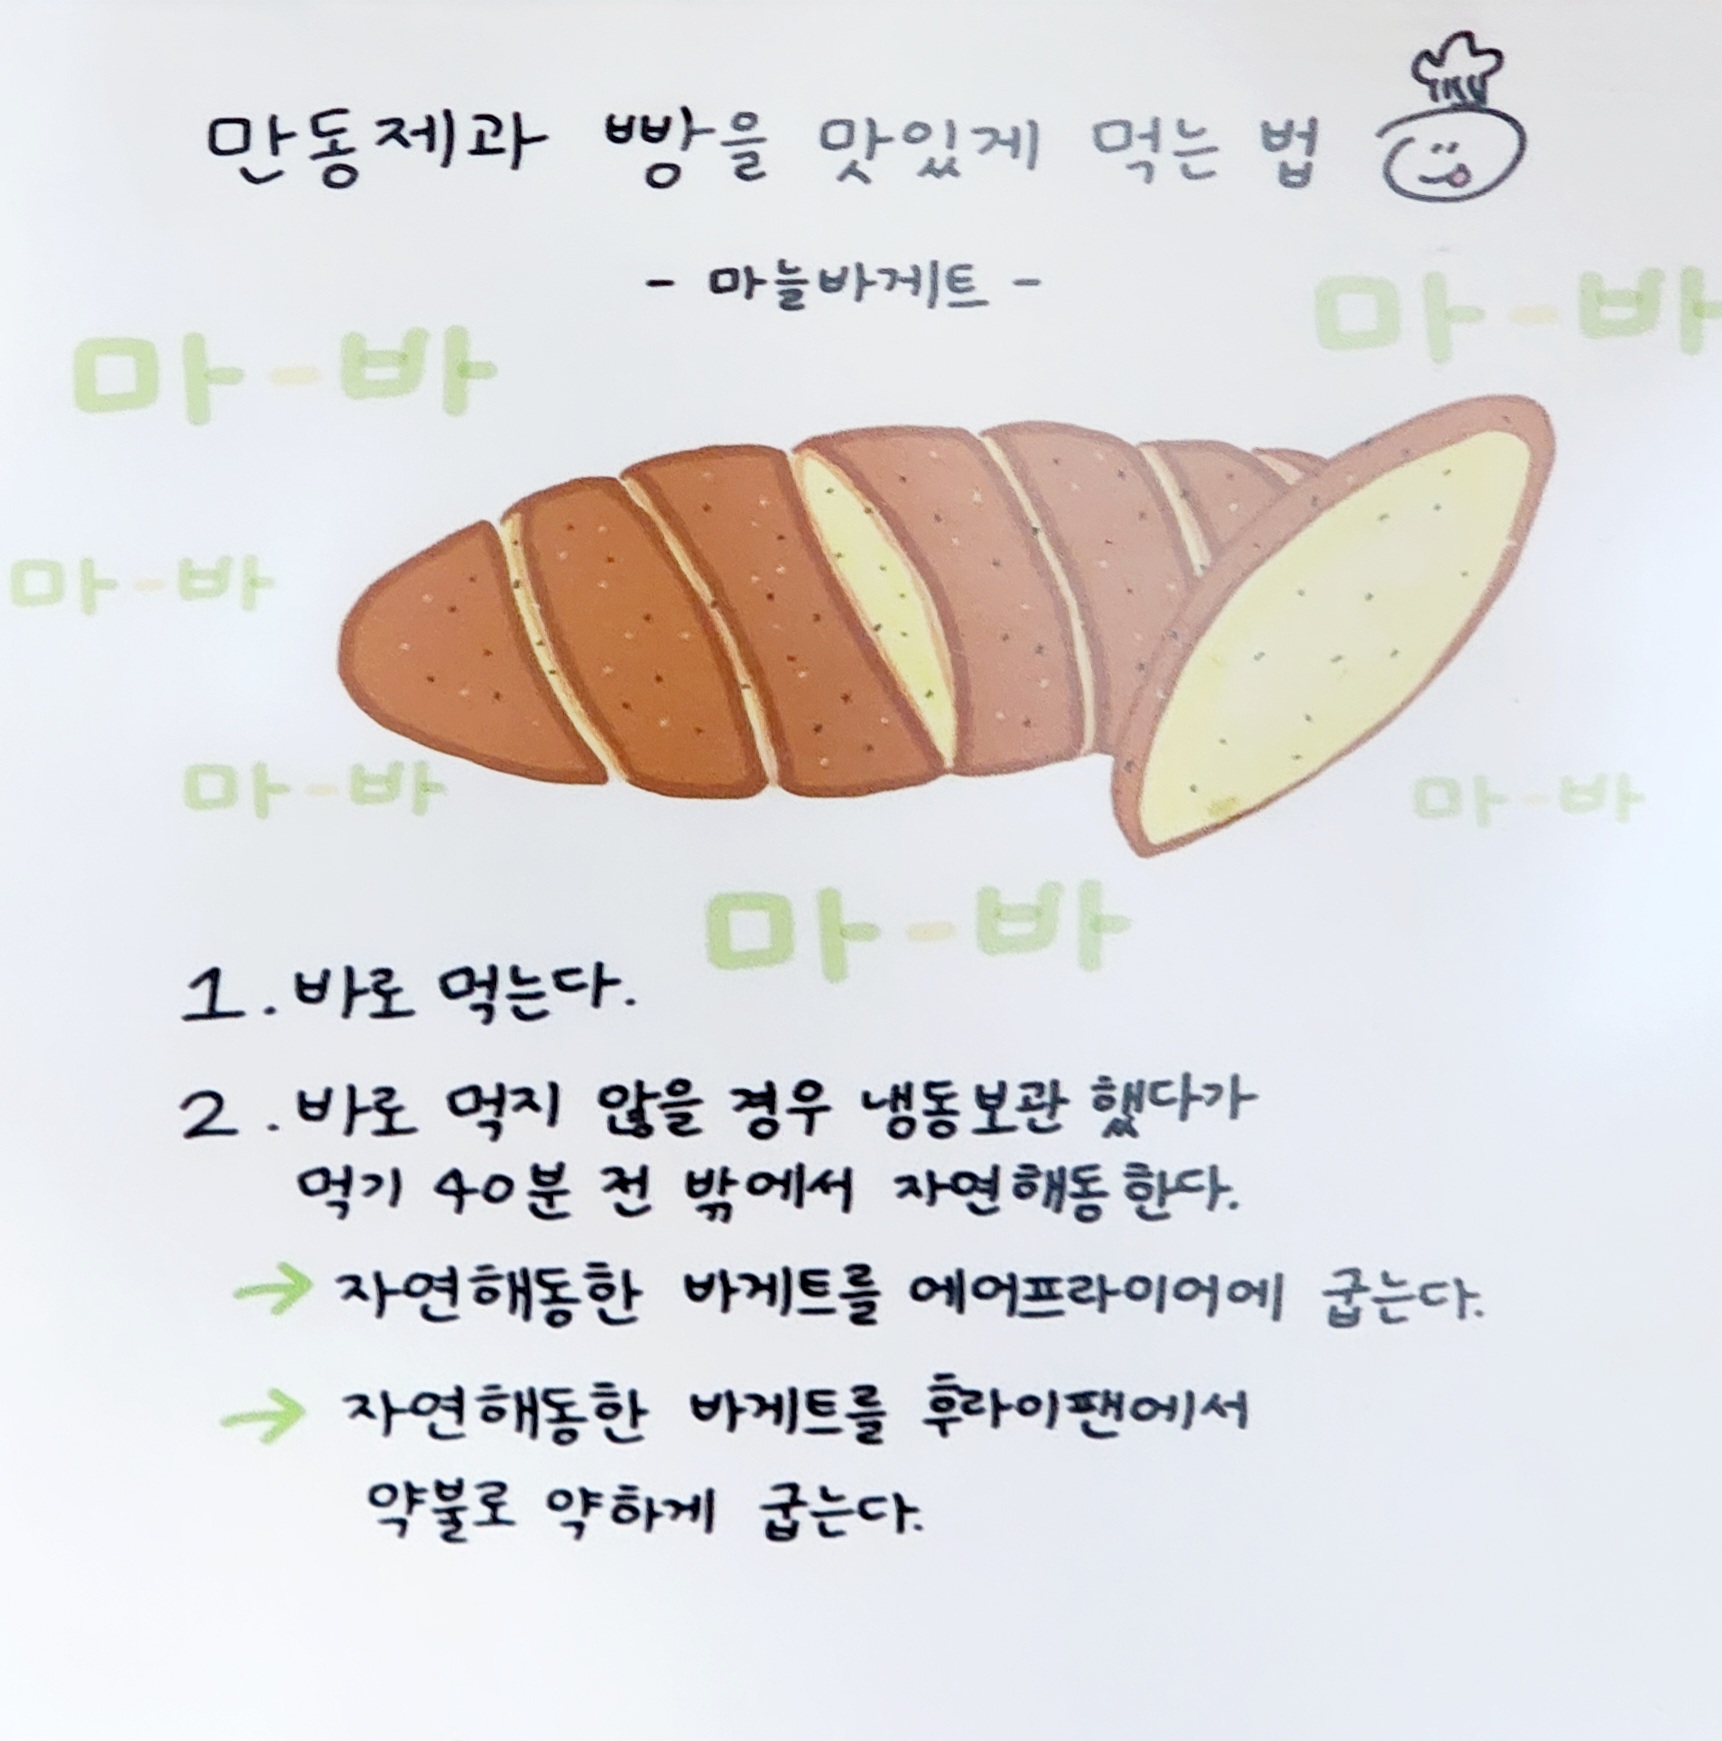 만동제과 빵을 맛있게 먹는 법
- 마늘바게트 -
마-바
마-바
마-바
마-바
마-바
마-바
1. 바로 먹는다.
2. 바로 먹지 않을 경우 냉동보관 했다가
먹기 40분 전 밖에서 자연해동 한다.
→ 자연해동한 바게트를 에어프라이어에 굽는다.
→ 자연해동한 바게트를 후라이팬에서
약불로 약하게 굽는다.